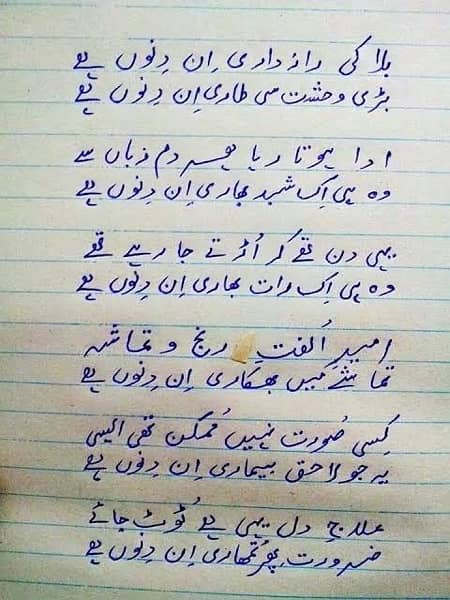 بلا کی راز داری اِن دِنوں ہے
بڑی وحشت سی طاری اِن دِنوں ہے
ادا ہوتا رہا ہر دم زباں سے
وہ ہی اِک شبد بھاری اِن دِنوں ہے
یہی دن تھے کہ اُڑتے جا رہے تھے
وہ ہی اِک رات بھاری اِن دِنوں ہے
امیدِ اُلفت رنج و تماشہ
تماشے میں بھکاری اِن دِنوں ہے
کِسی صُورت نہیں مُمکن تھی ایسی
یہ جو لاحق بیماری اِن دِنوں ہے
علاجِ دل یہی ہے ٹُوٹ جائے
ضرورت پِھر تُمھاری اِن دِنوں ہے